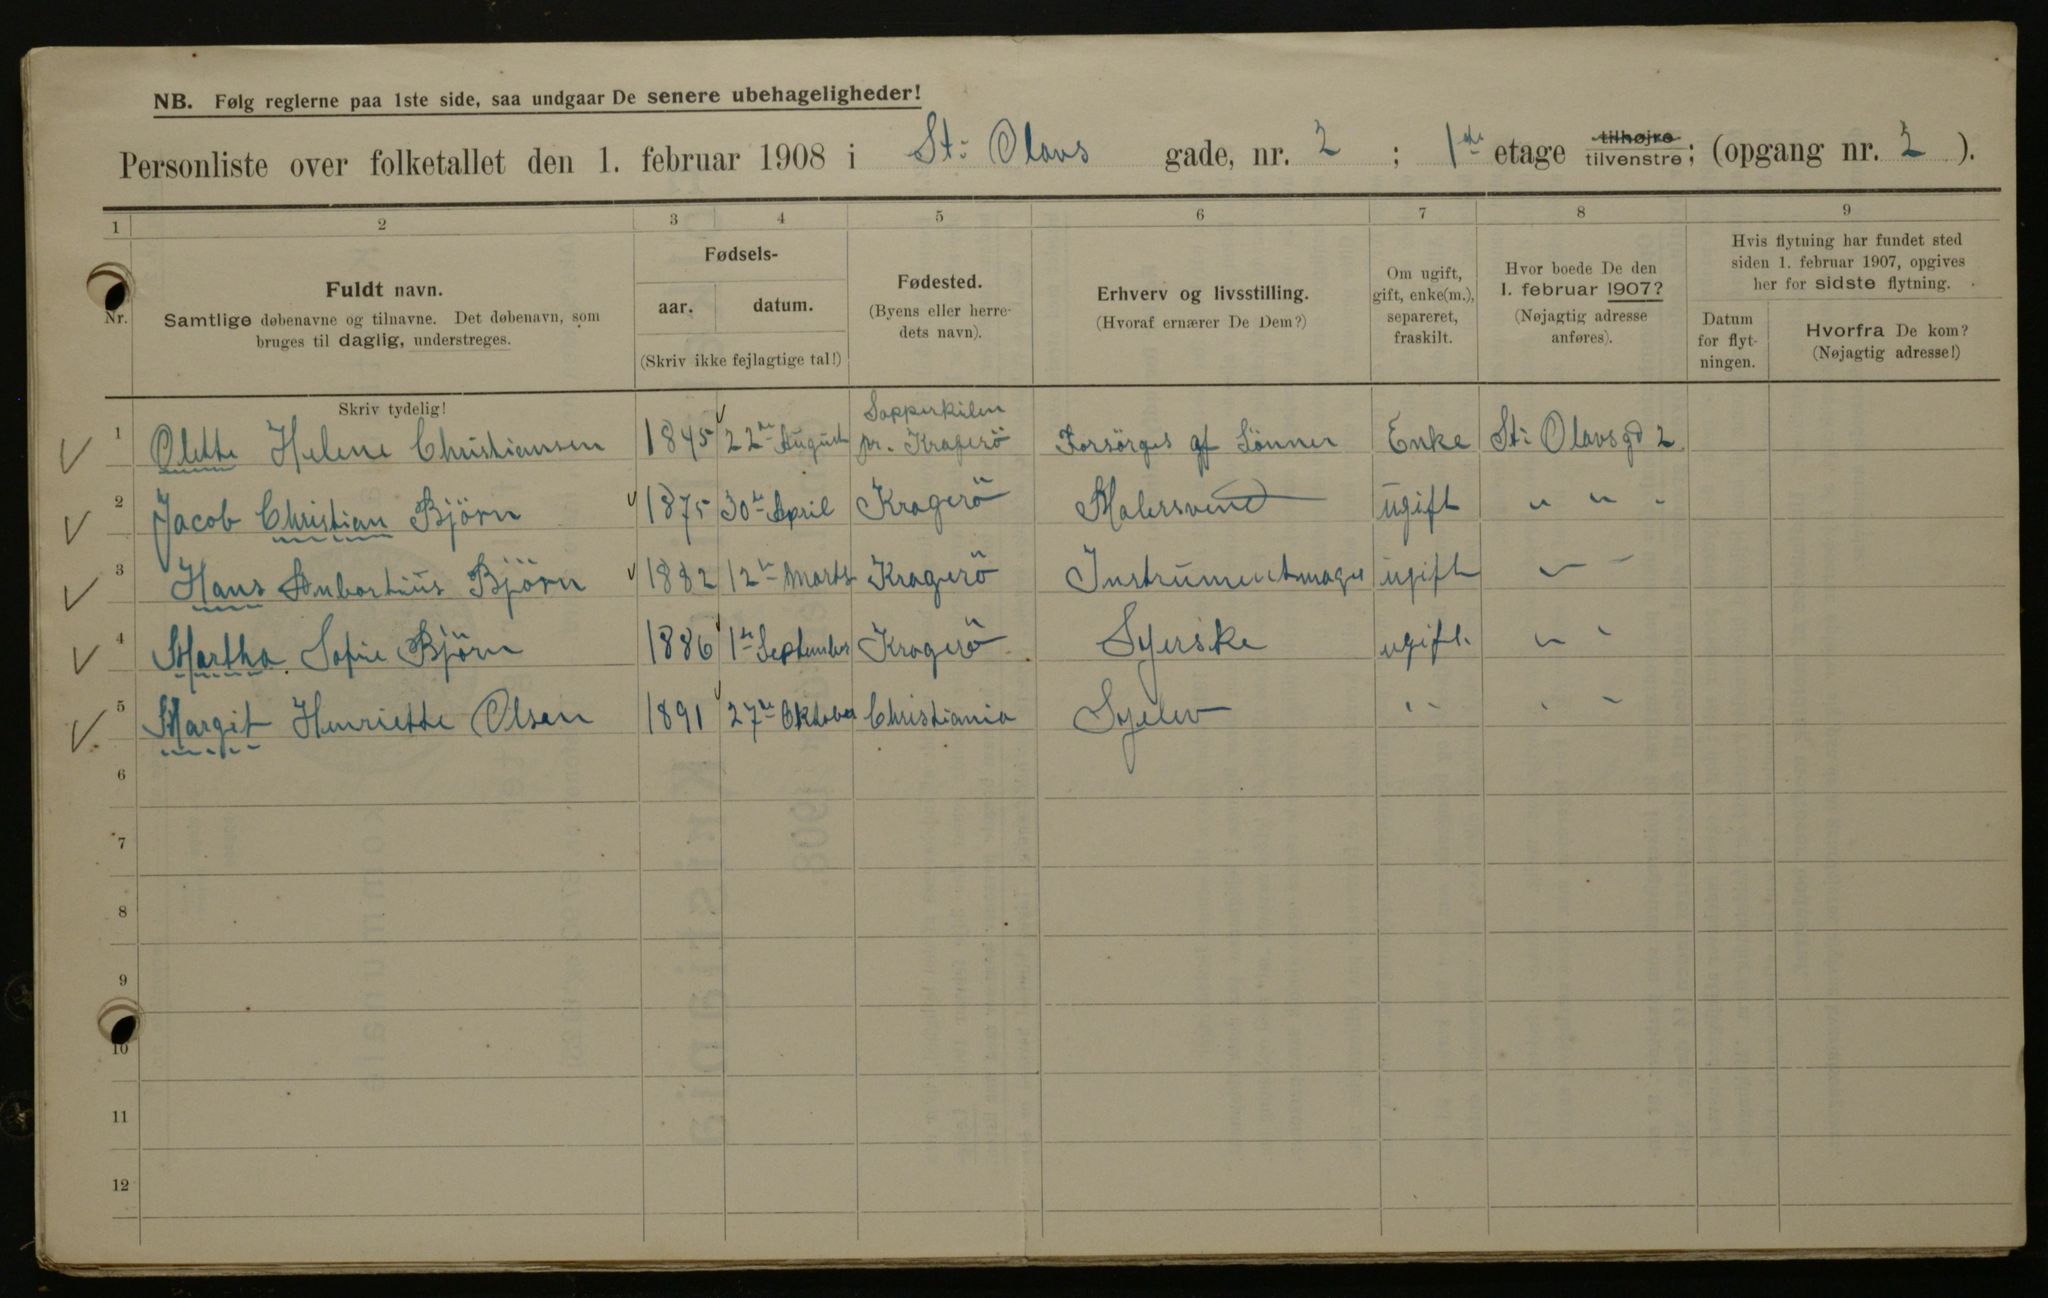 NB. Følg reglerne paa 1ste side, saa undgaar De senere ubehageligheder!
Personliste over folketallet den 1. februar 1908 i St: Olavs gade, nr. 2 ; 1ste etage tilhøjre tilvenstre; (opgang nr. 2 ).
1 2 3 4 5 6 7 8 9
Nr.
Fuldt navn.
Samtlige døbenavne og tilnavne. Det døbenavn, som
bruges til daglig, understreges.
Fødsels-
aar. datum.
(Skriv ikke fejlagtige tal!)
Fødested.
(Byens eller herre-
dets navn).
Erhverv og livsstilling.
(Hvoraf ernærer De Dem?)
Om ugift,
gift, enke(m.),
separeret,
fraskilt.
Hvor boede De den
1. februar 1907?
(Nøjagtig adresse
anføres).
Hvis flytning har fundet sted
siden 1. februar 1907, opgives
her for sidste flytning.
Datum
for flyt-
ningen.
Hvorfra De kom?
(Nøjagtig adresse!)
Skriv tydelig!
1 Olette Helene Christiansen 1845 22de August Sopperkilen
pr. Kragerö Forsörges af Sönner Enke St: Olavsgd 2
2 Jacob Christian Björn 1875 30te April Kragerö Malersvend ugift " " "
3 Hans Björn 1882 12te Marts Kragerö Instrumentmager ugift " "
4 Martha Sofie Björn 1886 1te September Kragerö Syerske ugift " "
5 Margit Henriette Olsen 1891 27de Oktober Christiania Syelev " " " "
6
7
8
9
10
11
12